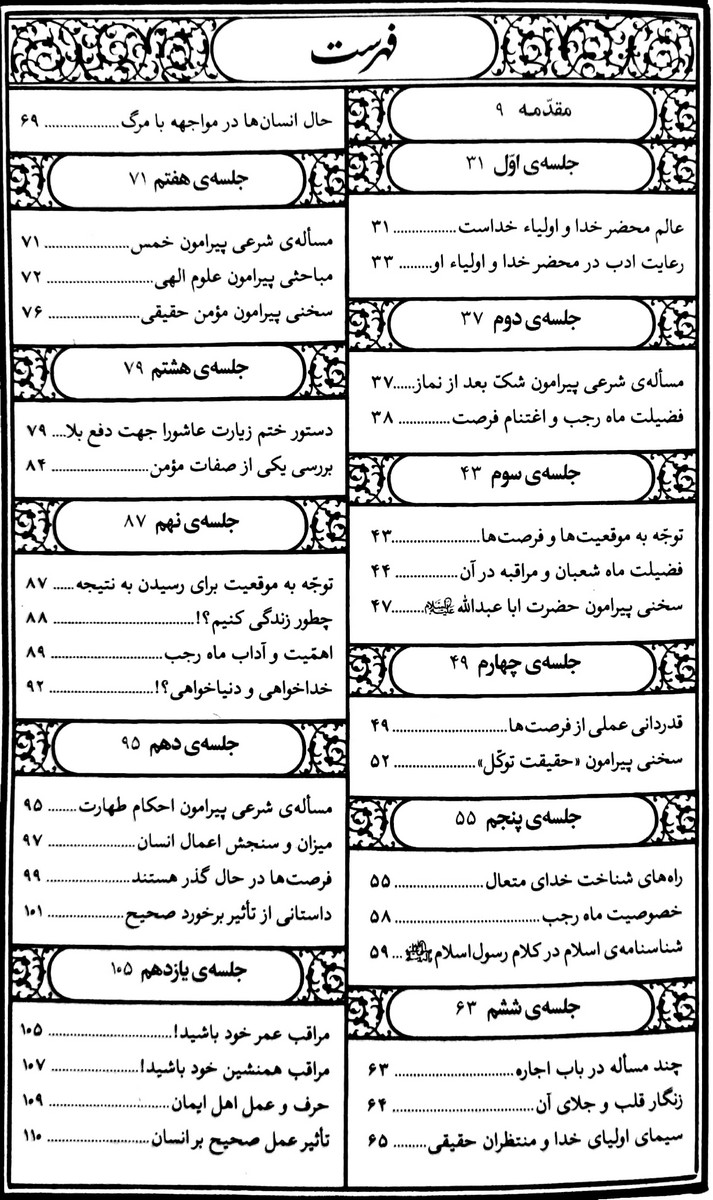 فهرست
مقدّمه ۹
جلسه‌ی اوّل ۳۱
عالم محضر خدا و اولیاء خداست.................. ۳۱
رعایت ادب در محضر خدا و اولیاء او........ ۳۳
جلسه‌ی دوم ۳۷
مسأله‌ی شرعی پیرامون شکّ بعد از نماز......۳۷
فضیلت ماه رجب و اغتنام فرصت.............. ۳۸
جلسه‌ی سوم ۴۳
توجّه به موقعیت‌ها و فرصت‌ها........................۴۳
فضیلت ماه شعبان و مراقبه در آن ................ ۴۴
سخنی پیرامون حضرت ابا عبدالله علیه‌السلام.........۴۷
جلسه‌ی چهارم ۴۹
قدردانی عملی از فرصت‌ها............................. ۴۹
سخنی پیرامون «حقیقت توکّل».................... ۵۲
جلسه‌ی پنجم ۵۵
راه‌های شناخت خدای متعال ...................... ۵۵
خصوصیت ماه رجب.................................... ۵۸
شناسنامه‌ی اسلام در کلام رسول‌اسلام ... ۵۹
جلسه‌ی ششم ۶۳
چند مسأله در باب اجاره............................. ۶۳
زنگار قلب و جلای آن................................. ۶۴
سیمای اولیای خدا و منتظران حقیقی......... ۶۵
حال انسان‌ها در مواجهه با مرگ.................. ۶۹
جلسه‌ی هفتم ۷۱
مسأله‌ی شرعی پیرامون خمس..................... ۷۱
مباحثی پیرامون علوم الهی.......................... ۷۲
سخنی پیرامون مؤمن حقیقی....................... ۷۶
جلسه‌ی هشتم ۷۹
دستور ختم زیارت عاشورا جهت دفع بلا.... ۷۹
بررسی یکی از صفات مؤمن........................ ۸۴
جلسه‌ی نهم ۸۷
توجّه به موقعیت برای رسیدن به نتیجه ..... ۸۷
چطور زندگی کنیم؟!................................... ۸۸
اهمّیت و آداب ماه رجب ........................... ۸۹
خداخواهی و دنیاخواهی؟!.......................... ۹۲
جلسه‌ی دهم ۹۵
مسأله‌ی شرعی پیرامون احکام طهارت........ ۹۵
میزان و سنجش اعمال انسان ..................... ۹۷
فرصت‌ها در حال گذر هستند..................... ۹۹
داستانی از تأثیر برخورد صحیح................... ۱۰۱
جلسه‌ی یازدهم ۱۰۵
مراقب عمر خود باشید!............................... ۱۰۵
مراقب همنشین خود باشید!........................ ۱۰۷
حرف و عمل اهل ایمان.............................. ۱۰۹
تأثیر عمل صحیح بر انسان......................... ۱۱۰